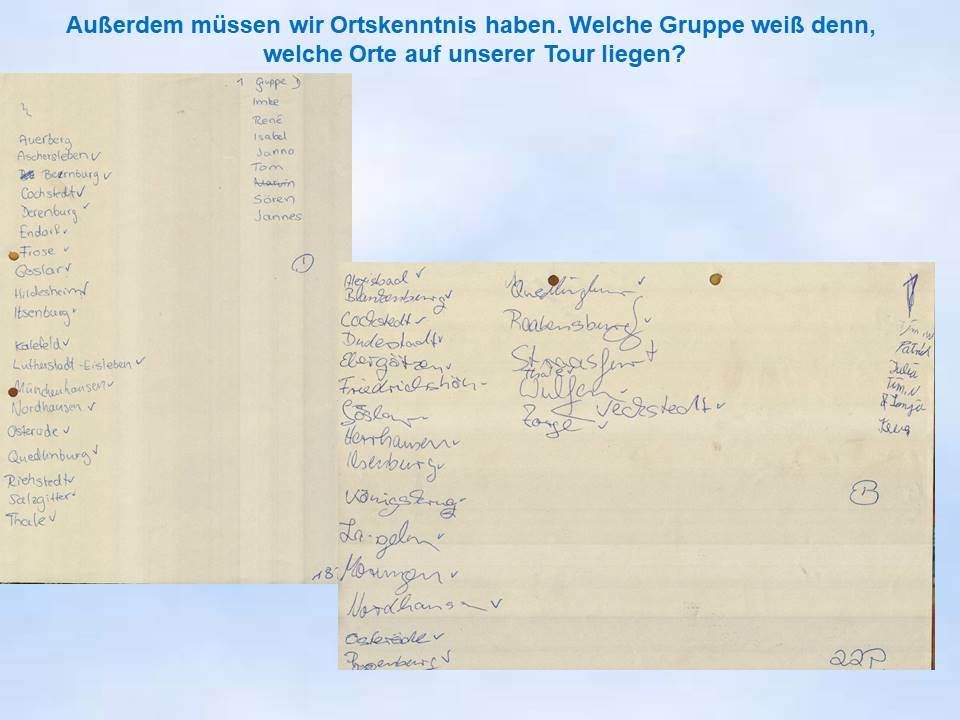 Außerdem müssen wir Ortskenntnis haben. Welche Gruppe weiß denn,
welche Orte auf unserer Tour liegen?
1 Gruppe
Imke
René
Isabel
Janno
Tom
Marvin
Sören
Jannes
1
Auerberg
Aschersleben ✓
Bernburg ✓
Cochstedt ✓
Derenburg ✓
Endorf ✓
Frose ✓
Goslar ✓
Hildesheim ✓
Ilsenburg ✓
Kalefeld ✓
Lutherstadt-Eisleben ✓
Münchenhausen ✓
Nordhausen ✓
Osterode ✓
Quedlinburg ✓
Riehstedt ✓
Salzgitter ✓
Thale ✓
18
Alexisbad ✓
Blankenburg ✓
Cockstedt ✓
Duderstadt ✓
Ebergötzen ✓
Goslar
Herrhausen ✓
Ilsenburg ✓
Königskrug
Morungen ✓
Nordhausen ✓
Osterode ✓
✓
Quedlinburg ✓
✓
Thale
Wulfen ✓
Veckstedt ✓
Zorge ✓
Tim.W
Patrick
Julia
Tim.N
B
22P